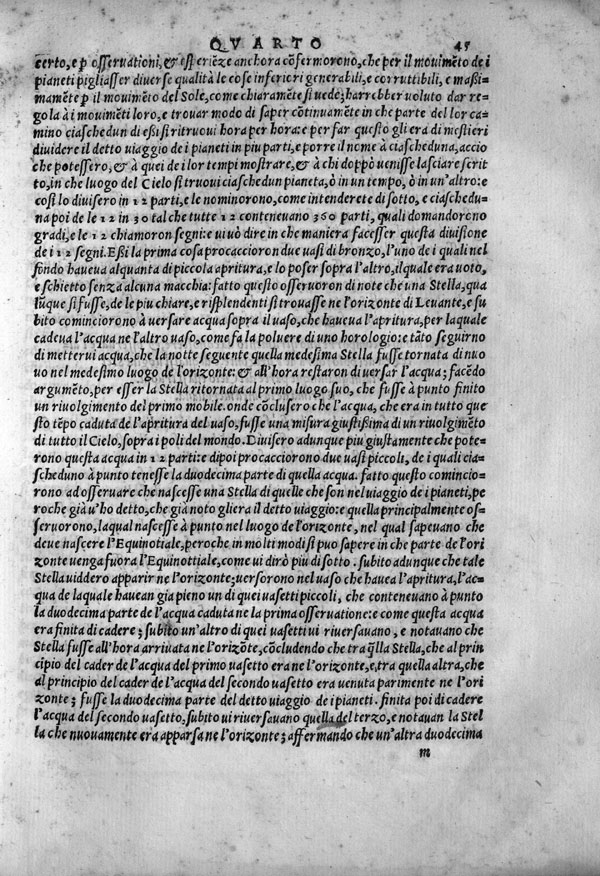 QVARTO 45
certo, e ꝑ osseruationi, & esperiēze anchora cōfermorono, che per il mouimēto de i
pianeti pigliasser diuerse qualità le cose inferiori generabili, e corruttibili, e massi-
mamēte ꝑ il mouimēto del Sole, come chiaramēte si uede; harrebber uoluto dar re-
gola à i mouimēti loro, e trouar modo di saper cōtinuamēte in che parte del lor ca-
mino ciaschedun di essi si ritruoui hora per hora: e per far questo gli era di mestieri
diuidere il detto uiaggio de i pianeti in piu parti, e porre il nome à ciascheduna, accio
che potessero, & à quei de i lor tempi mostrare, & à chi doppò uenisse lasciare scrit
to, in che luogo del Cielo si truoui ciaschedun pianeta, ò in un tempo, ò in un'altro: e
cosi lo diuisero in 12 parti, e le nominorono, come intenderete di sotto, e ciaschedu-
na poi de le 12 in 30 tal che tutte 12 conteneuano 360 parti, quali domandorono
gradi, e le 12 chiamoron segni: e ui uò dire in che maniera facesser questa diuisione
de i 12 segni. Essi la prima cosa procaccioron due uasi di bronzo, l'uno de i quali nel
fondo haueua alquanta di piccola apritura, e lo poser sopra l'altro, il quale era uoto,
e schietto senza alcuna macchia: fatto questo osseruoron di note che una Stella, qua
lūque si fusse, de le piu chiare, e risplendenti si trouasse ne l'orizonte di Leuante, e su
bito cominciorono à uersare acqua sopra il uaso, che haueua l'apritura, per laquale
cadeua l'acqua ne l'altro uaso, come fa la poluere di uno horologio: e tāto seguirno
di metterui acqua, che la notte seguente quella medesima Stella fusse tornata di nuo
uo nel medesimo luogo de l'orizonte: & all'hora restaron di uersar l'acqua; facēdo
argumēto, per esser la Stella ritornata al primo luogo suo, che fusse à punto finito
un riuolgimento del primo mobile. onde cōclusero che l'acqua, che era in tutto que
sto tēpo caduta de l'apritura del uaso, fusse una misura giustissima di un riuolgimēto
di tutto il Cielo, sopra i poli del mondo. Diuisero adunque piu giustamente che pote-
rono questa acqua in 12 parti: e dipoi procacciorono due uasi piccoli, de i quali cia-
scheduno à punto tenesse la duodecima parte di quella acqua. fatto questo comincio-
rono ad osseruare che nascesse una Stella di quelle che son nel uiaggio de i pianeti, pe
roche già u'ho detto, che già noto gli era il detto uiaggio: e quella principalmente os-
seruorono, laqual nascesse à punto nel luogo de l'orizonte, nel qual sapeuano che
deue nascere l'Equinotiale, peroche in molti modi si puo sapere in che parte de l'ori
zonte uenga fuora l'Equinottiale, come ui dirò piu di sotto. subito adunque che tale
Stella uiddero apparir ne l'orizonte; uersorono nel uaso che hauea l'apritura, l'ac-
qua de laquale hauean gia pieno un di quei uasetti piccoli, che conteneuano à punto
la duodecima parte de l'acqua caduta ne la prima osseruatione: e come questa acqua
era finita di cadere; subito un'altro di quei uasetti ui riuersauano, e notauano che
Stella fusse all'hora arriuata ne l'orizōte, cōcludendo che tra q̄lla Stella, che al prin-
cipio del cader de l'acqua del primo uasetto era ne l'orizonte, e, tra quella altra, che
al principio del cader de l'acqua del secondo uasetto era uenuta parimente ne l'ori
zonte; fusse la duodecima parte del detto uiaggio de i pianeti. finita poi di cadere
l'acqua del secondo uasetto, subito ui riuersauano quella del terzo, e notauan la Stel
la che nuouamente era apparsa ne l'orizonte; affermando che un'altra duodecima
m